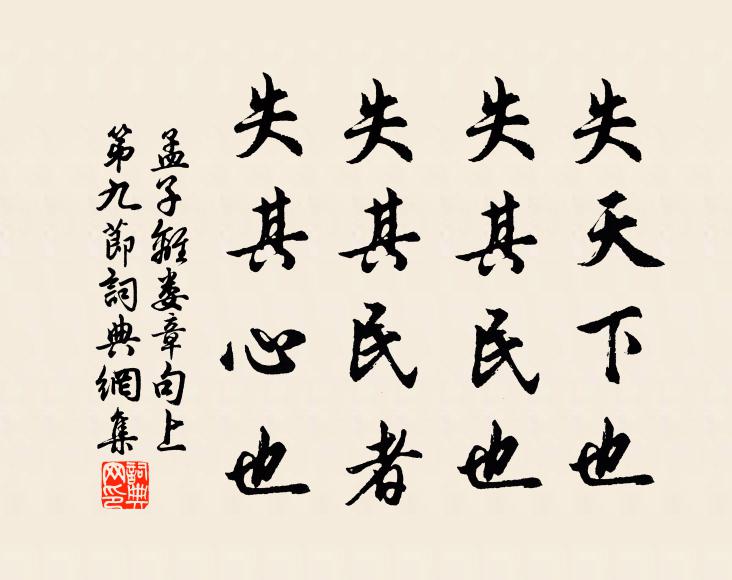 失天下也
失其民也
失其民者
失其心也
孟子離娄章句上
第九節詞典網集
詞典网印